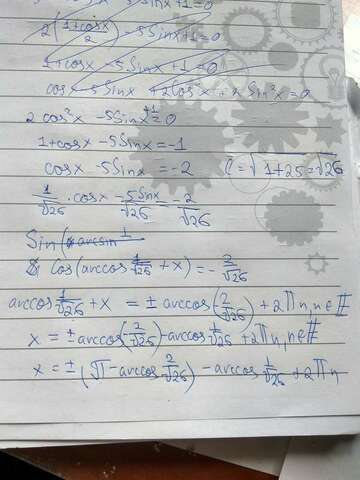 2(1+cosx/2) - 5Sinx+1=0
1+cosx - 5Sinx+1=0
2 cos²x - 5Sinx+1=0
1+cosx - 5Sinx = -1
cosx - 5Sinx = -2 C=√1+25=√26
1/√26 · cosx - 5Sinx/√26 = -2/√26
Sin( arcsin 1
Cos(arccos 1/√26 + x) = - 2/√26
arccos 1/√26 + x = ± arccos(2/√26) + 2πn, n∈Z
x = ± arccos(2/√26) - arccos 1/√26 + 2πn, n∈Z
x = ± (π - arccos 2/√26) - arccos 1/√26 + 2πn